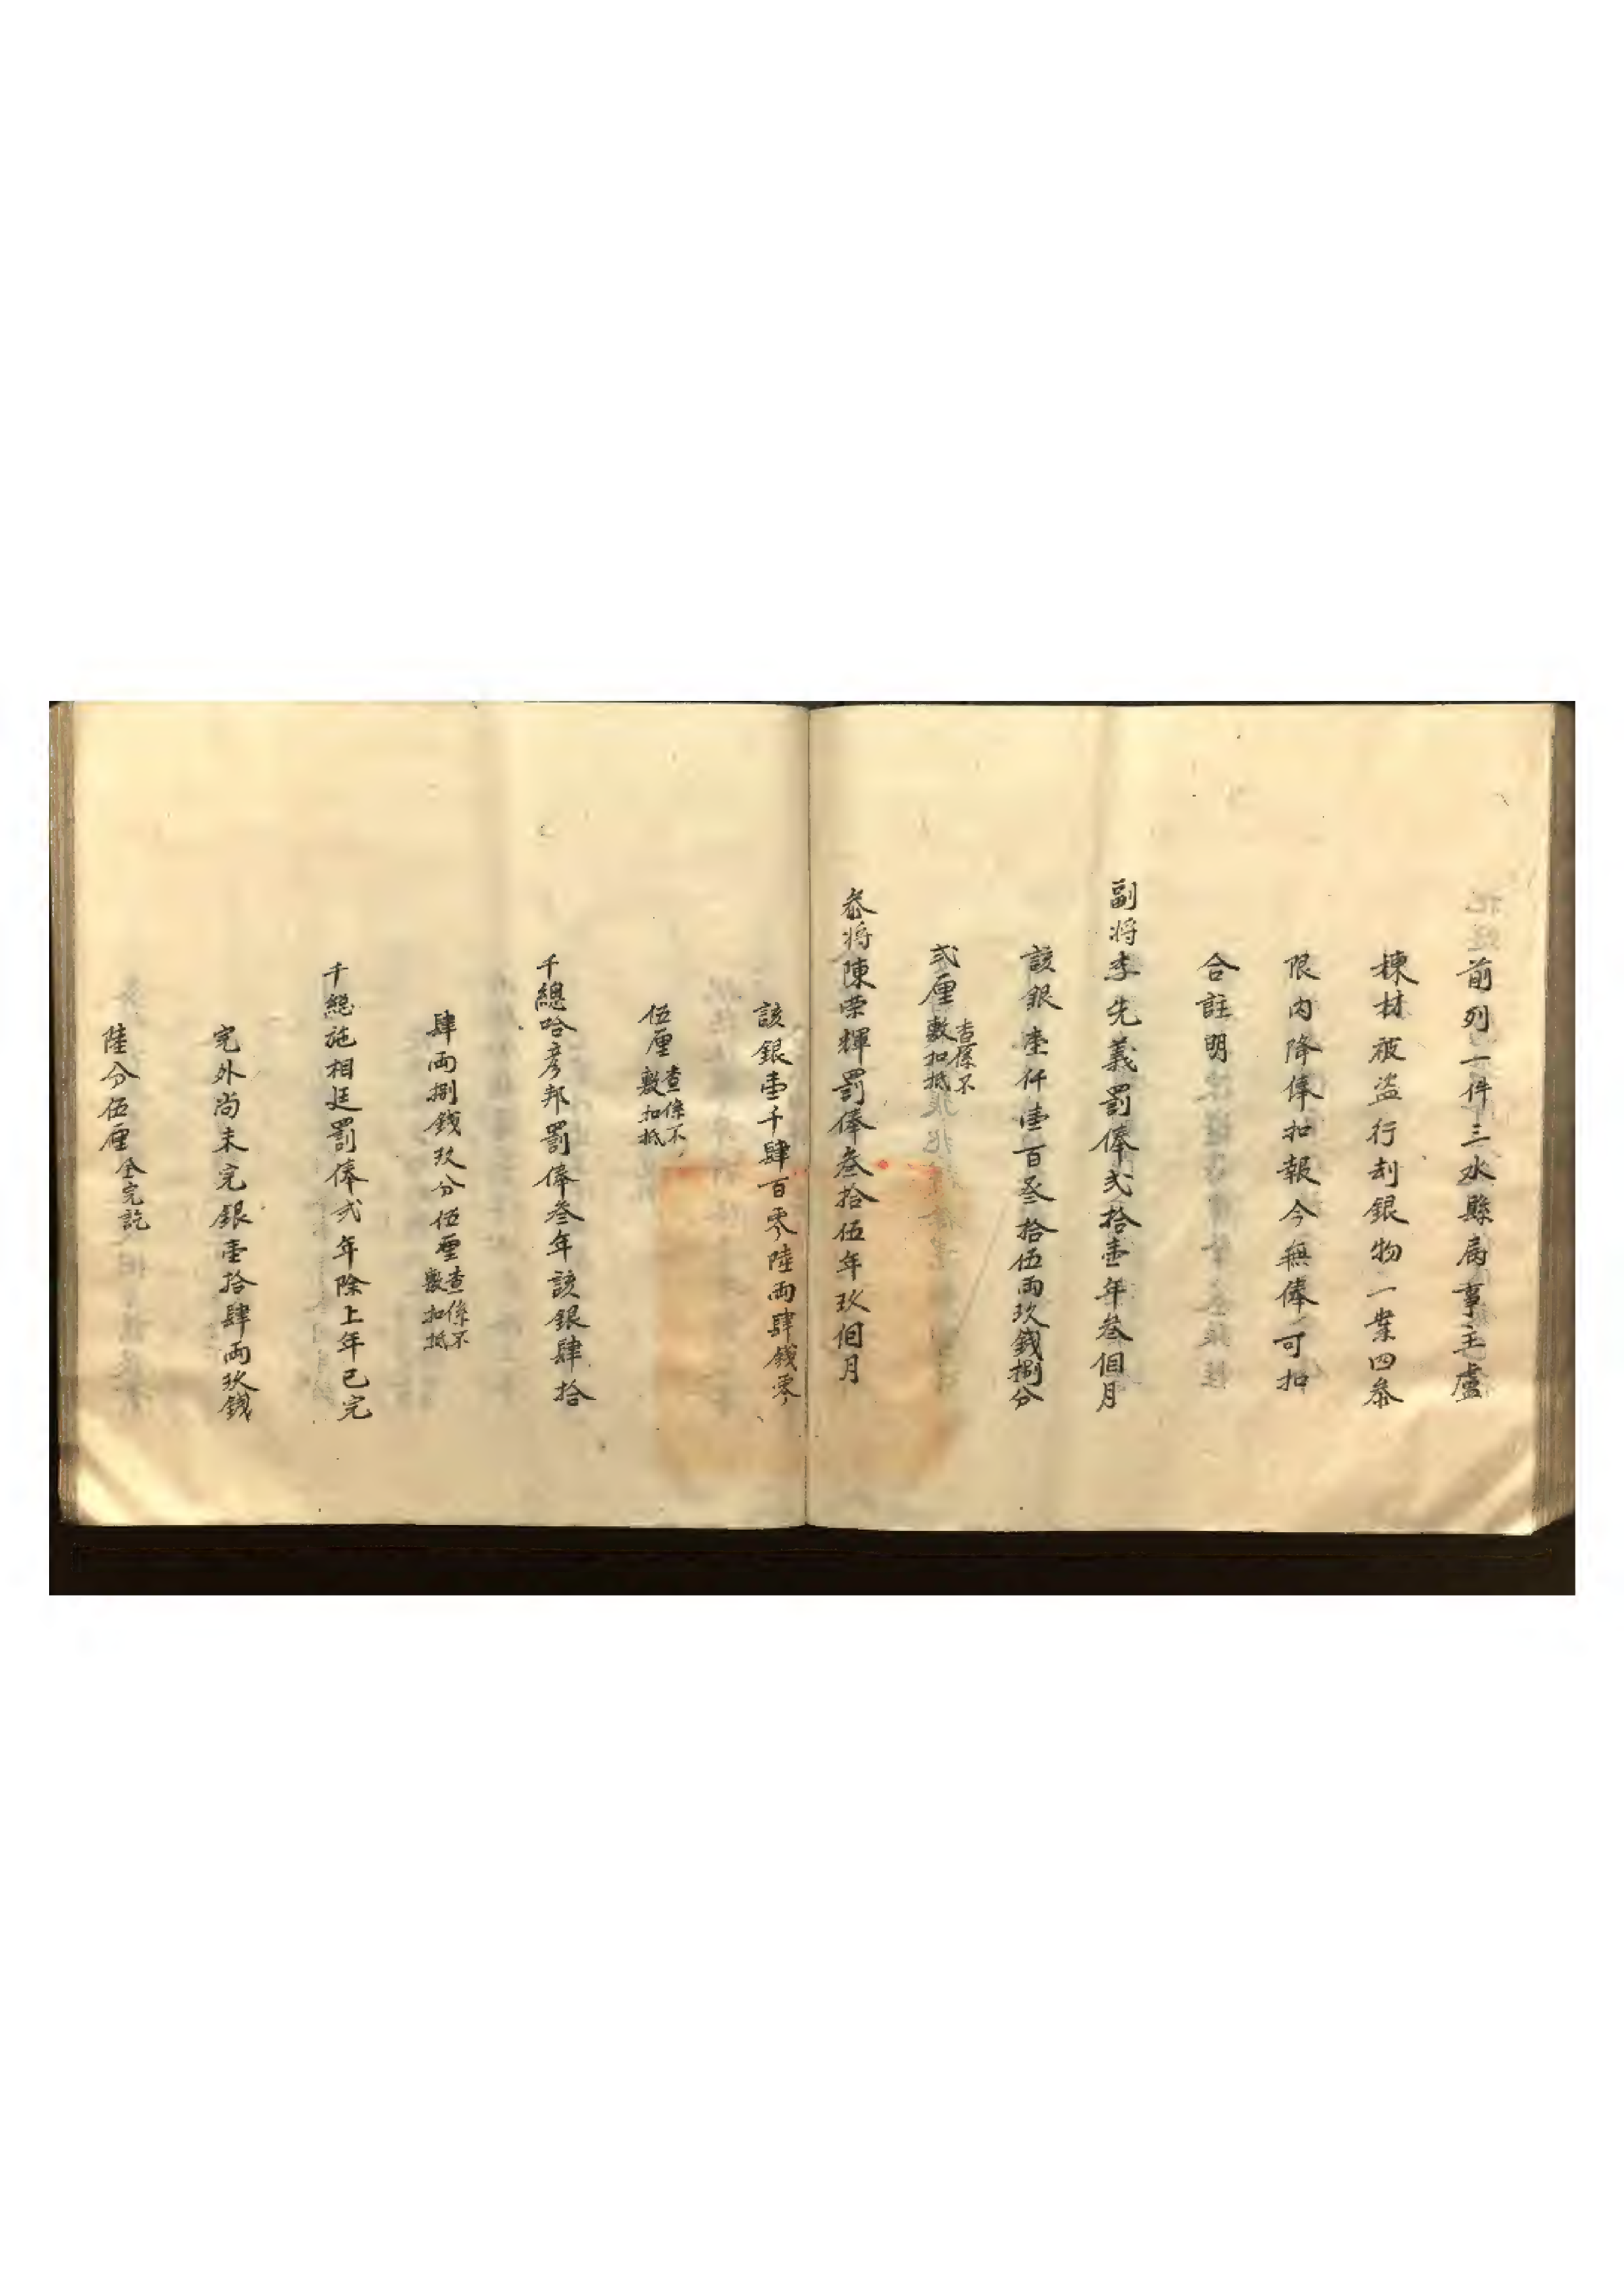 前列一件三水縣局事主盧
棟材被盗行刦銀物一案四叅
限内降俸扣報今無俸可扣
合註明
副将李先義罰俸弍拾壹年叁佀月
該銀壹仟壹百叁拾伍兩玖錢捌分
弍厘查係不敷扣抵
叅将陳荣輝罰俸叁拾伍年玖佀月
該銀壹千肆百零陸兩肆錢零
伍厘查係不敷扣抵
千總哈彦邦罰俸叁年該銀肆拾
肆兩捌錢玖分伍厘查係不敷扣抵
千總施相廷罰俸弍年除上年已完
完外尚未完銀壹拾肆兩玖錢
陸分伍厘全完訖